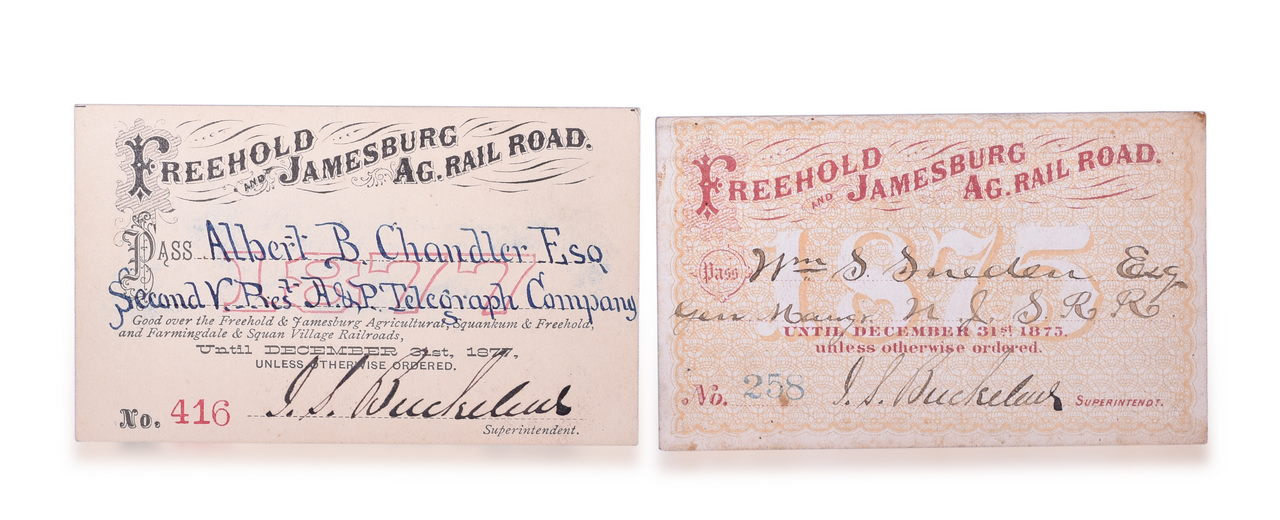 FREEHOLD AND JAMESBURG AG. RAIL ROAD.
PASS Albert B. Chandler Esq
1877
Second V. Rest A.&P. Telegraph Company
Good over the Freehold & Jamesburg Agricultural, Squankum & Freehold,
and Farmingdale & Squan Village Railroads,
Until DECEMBER 31st, 1877,
UNLESS OTHERWISE ORDERED.
No. 416 I. S. Buckelew
Superintendent.
FREEHOLD AND JAMESBURG AG. RAIL ROAD.
1875
Pass Wm S. Sneden Esq
Gen Mangr N. J. S. R. R.
UNTIL DECEMBER 31st 1875.
unless otherwise ordered.
No. 258 I. S. Buckelew SUPERINTENDT.